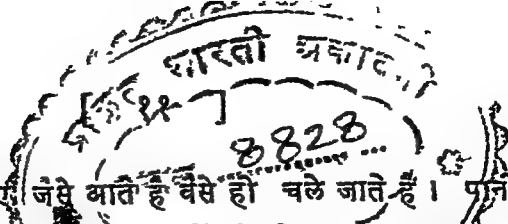 भारती
[ ११ ]
8828
जैसे आते हैं वैसे ही चले जाते हैं।